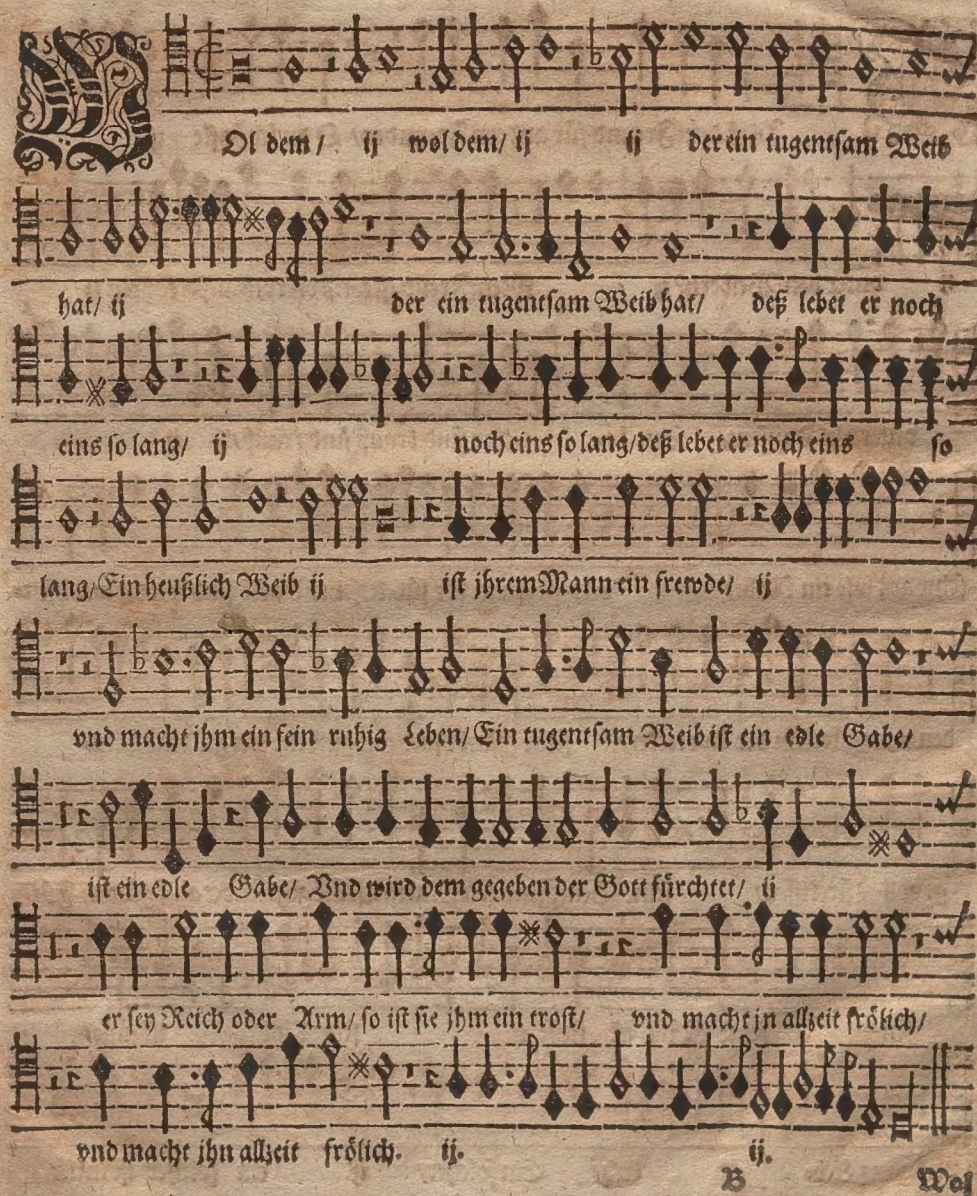 WOl dem / ij wol dem / ij ij der ein tugentsam Weib
hat / ij der ein tugentsam Weib hat / deß lebet er noch
eins so lang / ij noch eins so lang / deß lebet er noch eins so
lang / Ein heußlich Weib ij ist jhrem Mann ein frewde / ij
vnd macht jhm ein fein ruhig Leben / Ein tugentsam Weib ist ein edle Gabe /
ist ein edle Gabe / Vnd wird dem gegeben der Gott fürchtet / ij
er sey Reich oder Arm / so ist sie jhm ein trost / vnd macht jn allzeit frölich /
vnd macht jhn allzeit frölich. ij. ij.
B Wol